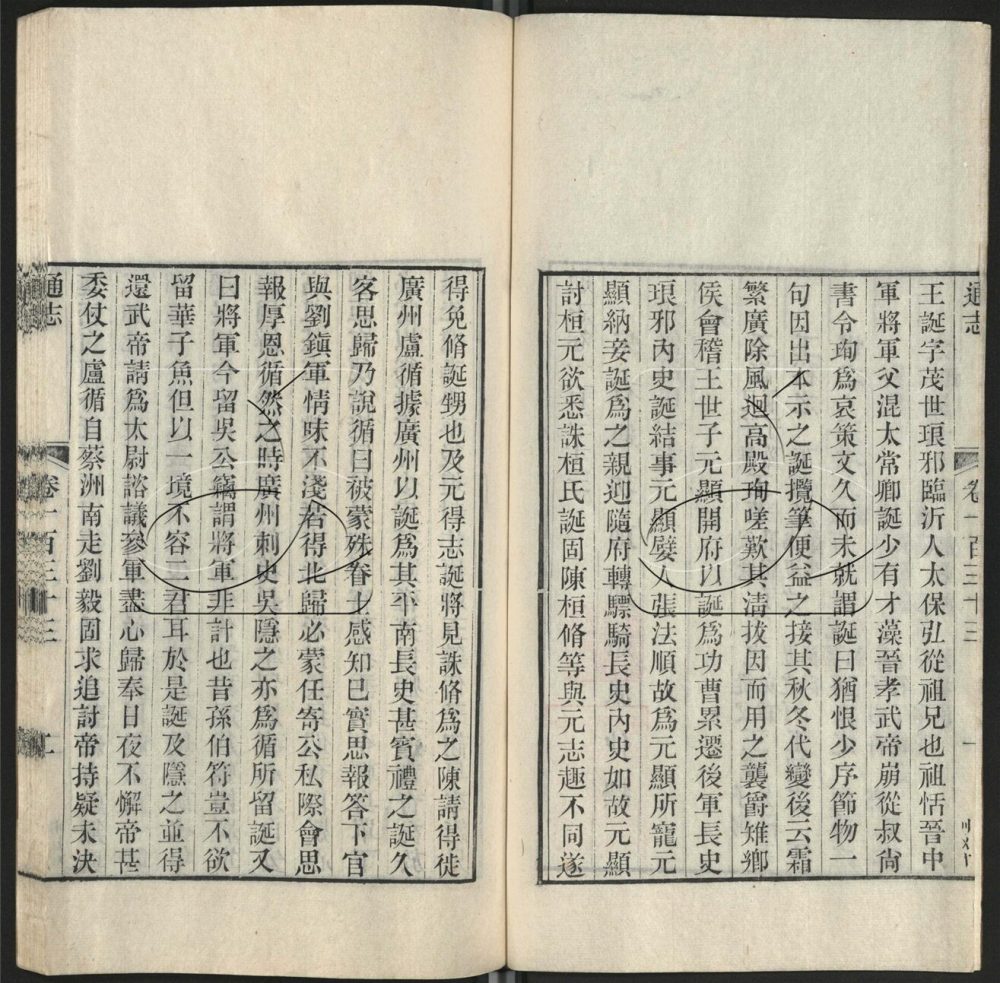 通志
卷一百三十三
一
王誕字茂世琅邪臨沂人太保弘從祖兄也祖恬晉中
軍將軍父混太常卿誕少有才藻晉孝武帝崩從叔尙
書令珣爲哀策文久而未就謂誕曰猶恨少序節物一
句因出本示之誕攬筆便益之接其秋冬代變後云霜
繁廣除風迴高殿珣嗟歎其淸拔因而用之襲爵雉鄉
侯會稽王世子元顯開府以誕爲功曹累遷後軍長史
琅邪內史誕結事元顯嬖人張法順故爲元顯所寵元
顯納妾誕爲之親迎隨府轉驃騎長史內史如故元顯
討桓元欲悉誅桓氏誕固陳桓脩等與元志趣不同遂
得免脩誕甥也及元得志誕將見誅脩爲之陳請得徙
廣州盧循據廣州以誕爲其平南長史甚賓禮之誕久
客思歸乃說循曰被蒙殊眷士感知巳實思報答下官
與劉鎭軍情味不淺若得北歸必蒙任寄公私際會思
報厚恩循然之時廣州刺史吳隱之亦爲循所留誕又
曰將軍今留吳公竊謂將軍非計也昔孫伯符豈不欲
留華子魚但以一境不容二君耳於是誕及隱之並得
還武帝請爲太尉諮議參軍盡心歸奉日夜不懈帝甚
委仗之盧循自蔡洲南走劉毅固求追討帝持疑未決
通志
卷一百三十三